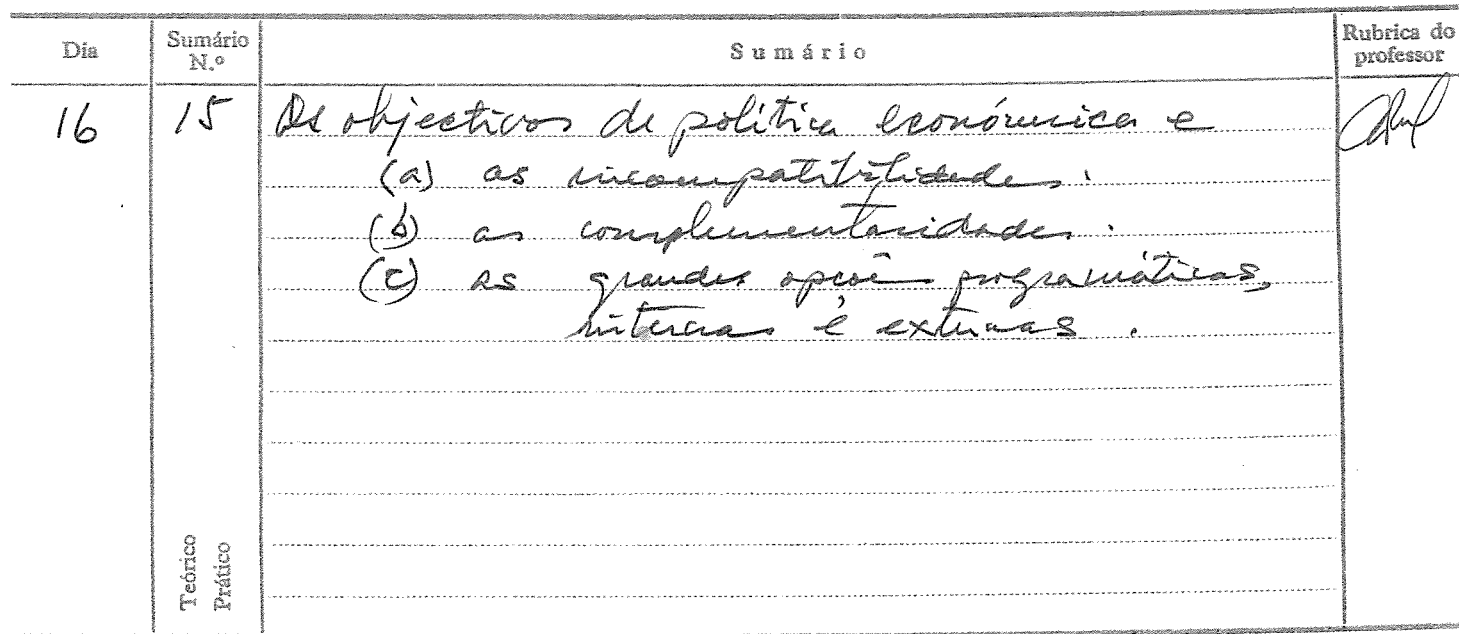 Dia
Sumário
N.º
Sumário
Rubrica do
professor
16
15
Os objectivos de política económica e
(a) as incompatibilidades.
(b) as complementaridades.
(c) as grandes opções programáticas,
internas e externas.
Teórico
Prático